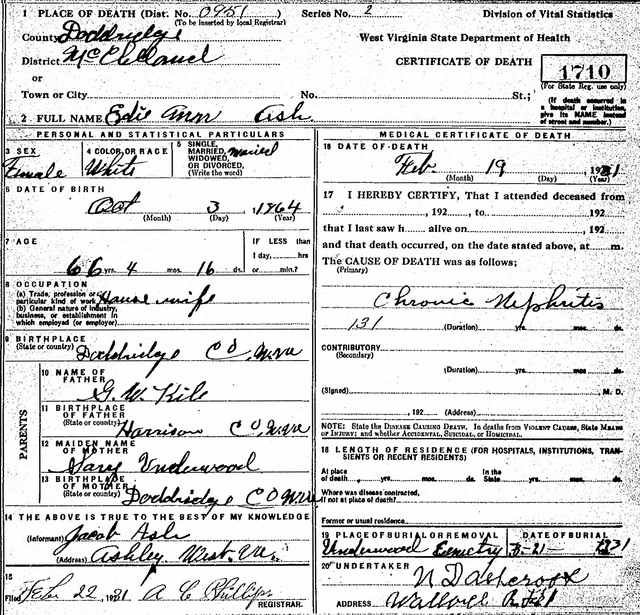 1 PLACE OF DEATH (Dist. No. 0951) Series No. 2 Division of Vital Statistics
(To be inserted by local Registrar)
County Doddridge West Virginia State Department of Health
District McClelland CERTIFICATE OF DEATH 1710
or (For State Reg. use only)
Town or City No. St.; (If death occurred in a hospital or institution, give its NAME instead of street and number.)
2 FULL NAME Edie Ann Ash
PERSONAL AND STATISTICAL PARTICULARS
3 SEX Female
4 COLOR OR RACE White
5 SINGLE, MARRIED, WIDOWED, OR DIVORCED. (Write the word) Married
6 DATE OF BIRTH
Oct 3, 1864
(Month) (Day) (Year)
7 AGE
66 yrs. 4 mos. 16 ds.
IF LESS than
1 day, hrs
or min.?
8 OCCUPATION
(a) Trade, profession or
particular kind of work House wife
(b) General nature of industry,
business, or establishment in
which employed (or employer)
9 BIRTHPLACE
(State or country) Doddridge CO, W.Va
PARENTS
10 NAME OF
FATHER
G. W. Kile
11 BIRTHPLACE
OF FATHER
(State or country) Harrison CO, W.Va
12 MAIDEN NAME
OF MOTHER
Underwood
13 BIRTHPLACE
OF MOTHER
(State or country) Doddridge CO W.Va
14 THE ABOVE IS TRUE TO THE BEST OF MY KNOWLEDGE
(Informant) Jacob Ash
(Address) Ashley West. Va.
15
Filed Feb 22, 1931 A C Phillips
REGISTRAR.
MEDICAL CERTIFICATE OF DEATH
16 DATE OF DEATH
Feb. 19, 1931
(Month) (Day) (Year)
17 I HEREBY CERTIFY, That I attended deceased from
, 192 , to , 192
that I last saw h alive on , 192
and that death occurred, on the date stated above, at m.
The CAUSE OF DEATH was as follows;
(Primary)
Chronic Nephritis
131 (Duration) yrs. mos. ds.
CONTRIBUTORY
(Secondary)
(Duration) yrs. mos. ds.
(Signed) , M. D.
, 192 (Address)
NOTE: State the DISEASE CAUSING DEATH. In deaths from VIOLENT CAUSES, State MEANS
OF INJURY; and whether ACCIDENTAL, SUICIDAL, OR HOMICIDAL.
18 LENGTH OF RESIDENCE (FOR HOSPITALS, INSTITUTIONS, TRAN-
SIENTS OR RECENT RESIDENTS).
At place of death yrs. mos. ds. In the State yrs. mos. ds.
Where was disease contracted,
if not at place of death?
Former or usual residence
19 PLACE OF BURIAL OR REMOVAL DATE OF BURIAL
Underwood Cemetry 21 1931
20 UNDERTAKER
ADDRESS